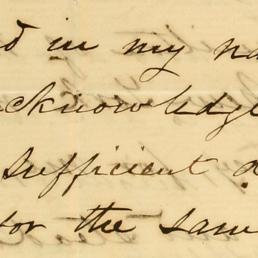 in my
acknowledge
sufficient
for the same